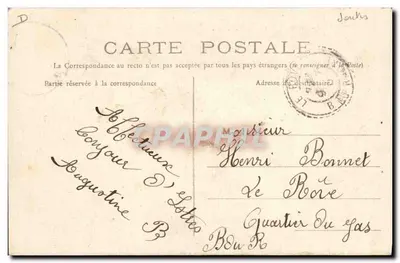 D
CARTE POSTALE
La Correspondance au recto n'est pas acceptée par tous les pays étrangers (se renseigner à la Poste)
Partie réservée à la correspondance
Adresse
Affectueux
bonjour d'Istres
Augustine B
Monsieur
Henri Bonnet
Le Rôve
Quartier du Jas
B du R
CPAPHIL